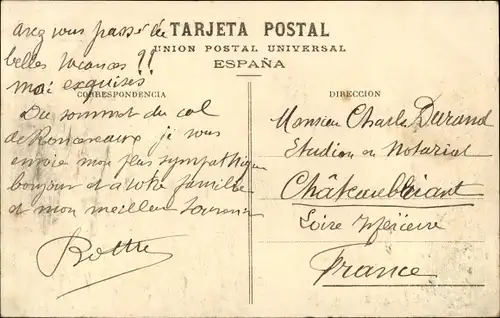 avez vous passé de
belles vacances !!
moi exquises
TARJETA POSTAL
UNION POSTAL UNIVERSAL
ESPAÑA
CORRESPONDENCIA
Du sommet du col
de Roncevaux je vous
envoie mon plus sympathique
bonjour et a votre famille
et mon meilleur souvenir
DIRECCION
Monsieur Charles Durand
Etudian en Notariat
Châteaubriant
Loire Inférieure
France